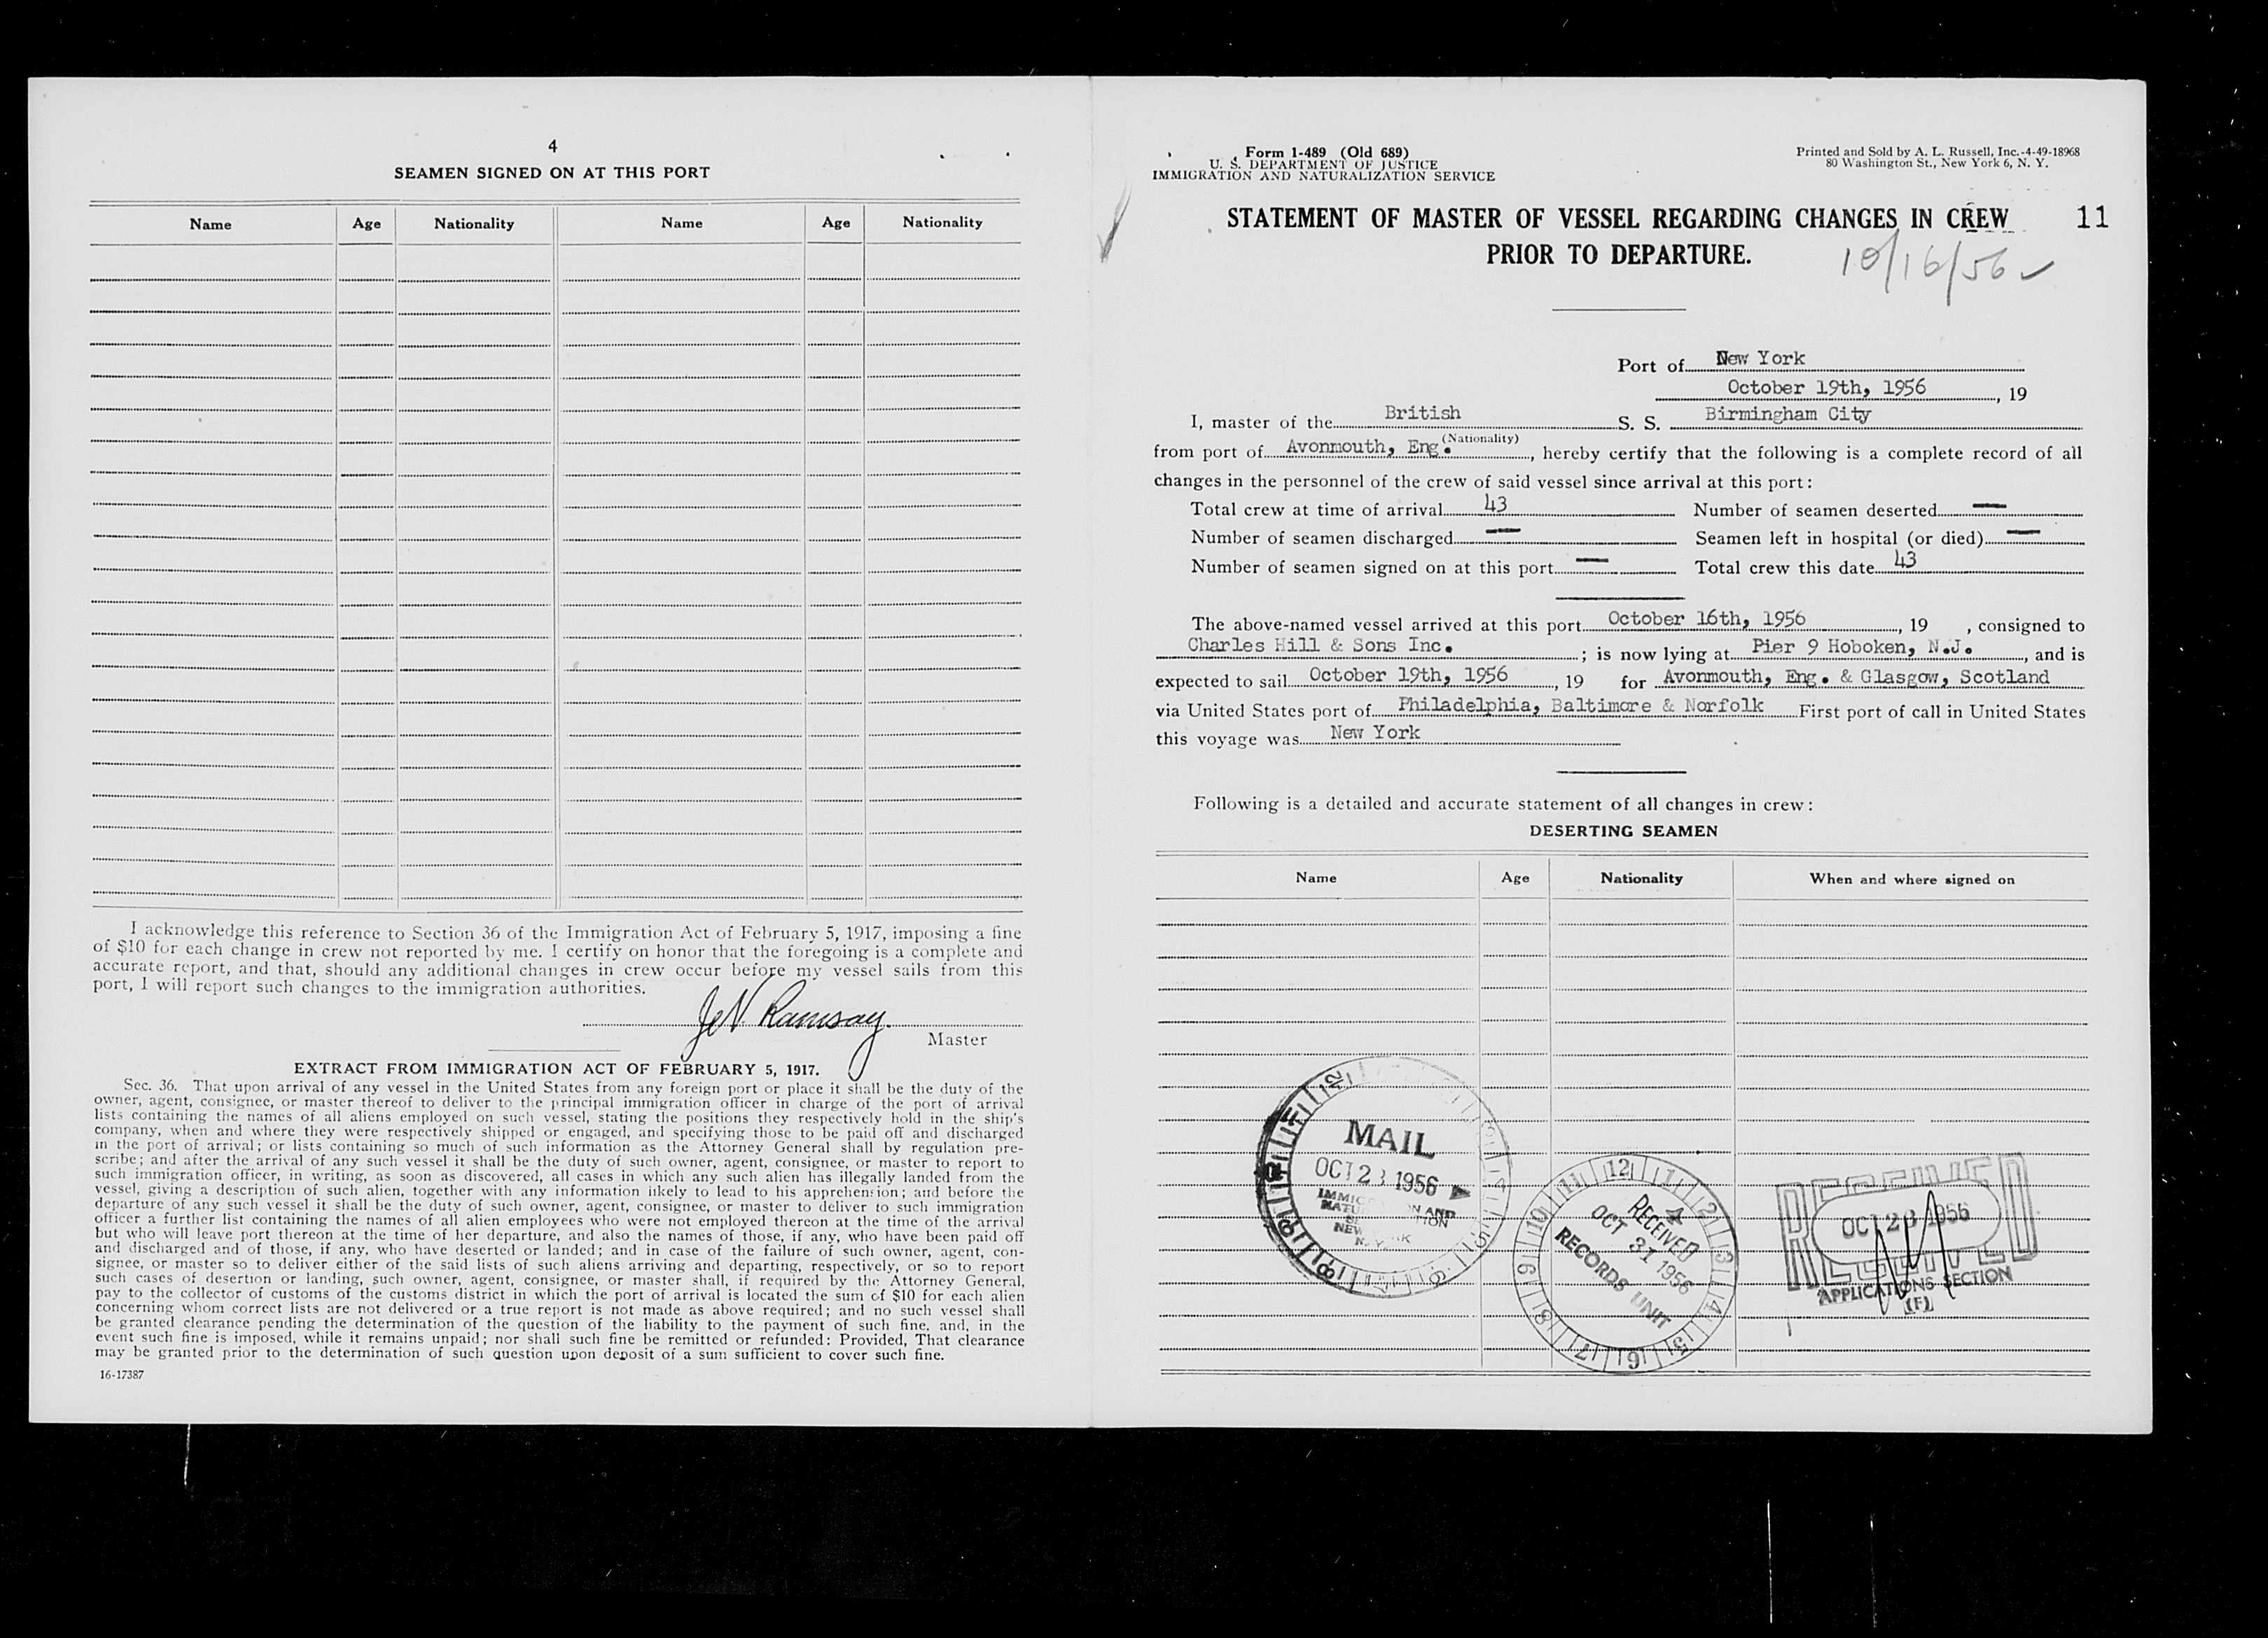 4
SEAMEN SIGNED ON AT THIS PORT
Name Age Nationality Name Age Nationality
I acknowledge this reference to Section 36 of the Immigration Act of February 5, 1917, imposing a fine
of $10 for each change in crew not reported by me. I certify on honor that the foregoing is a complete and
accurate report, and that, should any additional changes in crew occur before my vessel sails from this
port, I will report such changes to the immigration authorities.
Ramsay.
Master
EXTRACT FROM IMMIGRATION ACT OF FEBRUARY 5, 1917.
Sec. 36. That upon arrival of any vessel in the United States from any foreign port or place it shall be the duty of the
owner, agent, consignee, or master thereof to deliver to the principal immigration officer in charge of the port of arrival
lists containing the names of all aliens employed on such vessel, stating the positions they respectively hold in the ship's
company, when and where they were respectively shipped or engaged, and specifying those to be paid off and discharged
in the port of arrival; or lists containing so much of such information as the Attorney General shall by regulation pre-
scribe; and after the arrival of any such vessel it shall be the duty of such owner, agent, consignee, or master to report to
such immigration officer, in writing, as soon as discovered, all cases in which any such alien has illegally landed from the
vessel, giving a description of such alien, together with any information likely to lead to his apprehension; and before the
departure of any such vessel it shall be the duty of such owner, agent, consignee, or master to deliver to such immigration
officer a further list containing the names of all alien employees who were not employed thereon at the time of the arrival
but who will leave port thereon at the time of her departure, and also the names of those, if any, who have been paid off
and discharged and of those, if any, who have deserted or landed; and in case of the failure of such owner, agent, con-
signee, or master so to deliver either of the said lists of such aliens arriving and departing, respectively, or so to report
such cases of desertion or landing, such owner, agent, consignee, or master shall, if required by the Attorney General,
pay to the collector of customs of the customs district in which the port of arrival is located the sum of $10 for each alien
concerning whom correct lists are not delivered or a true report is not made as above required; and no such vessel shall
be granted clearance pending the determination of the question of the liability to the payment of such fine, and, in the
event such fine is imposed, while it remains unpaid; nor shall such fine be remitted or refunded: Provided, That clearance
may be granted prior to the determination of such question upon deposit of a sum sufficient to cover such fine.
16-17387
Form 1-489 (Old 689)
U. S. DEPARTMENT OF JUSTICE
IMMIGRATION AND NATURALIZATION SERVICE
Printed and Sold by A. L. Russell, Inc.-4-49-18968
80 Washington St., New York 6, N. Y.
STATEMENT OF MASTER OF VESSEL REGARDING CHANGES IN CREW 11
PRIOR TO DEPARTURE.
10/16/56
Port of New York
October 19th, 1956, 19
I, master of the British S. S. Birmingham City
(Nationality)
from port of Avonmouth, Eng., hereby certify that the following is a complete record of all
changes in the personnel of the crew of said vessel since arrival at this port:
Total crew at time of arrival 43 Number of seamen deserted —
Number of seamen discharged — Seamen left in hospital (or died) —
Number of seamen signed on at this port — Total crew this date 43
The above-named vessel arrived at this port October 16th, 1956, 19 , consigned to
Charles Hill & Sons Inc. ; is now lying at Pier 9 Hoboken, N.J., and is
expected to sail October 19th, 1956, 19 for Avonmouth, Eng. & Glasgow, Scotland
via United States port of Philadelphia, Baltimore & Norfolk First port of call in United States
this voyage was New York
Following is a detailed and accurate statement of all changes in crew:
DESERTING SEAMEN
Name Age Nationality When and where signed on
MAIL
OCT 23 1956
RECEIVED
OCT 31 1956
RECORDS UNIT
RECEIVED
OCT 23 1956
APPLICATIONS SECTION
(F)